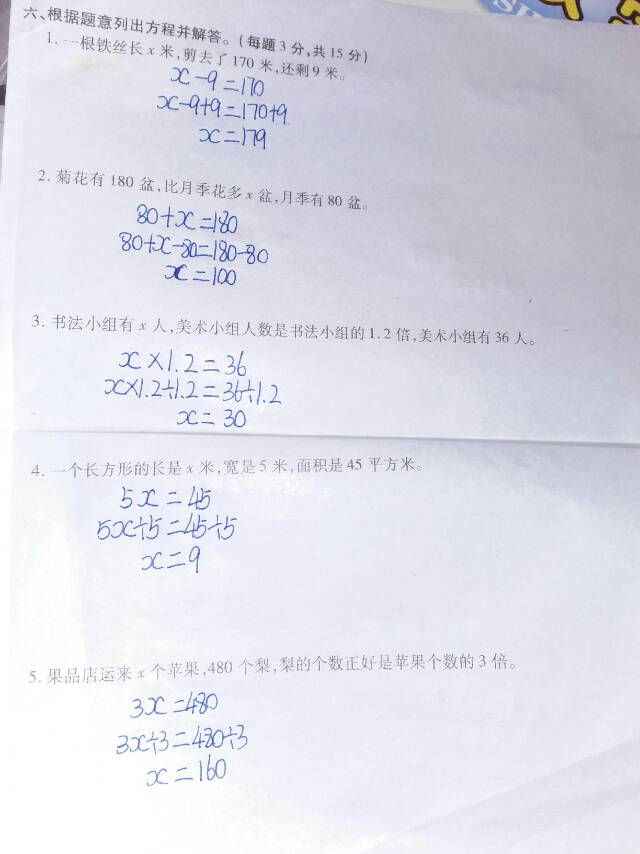 六、根据题意列出方程并解答。(每题3分,共15分)
1. 一根铁丝长x米,剪去了170米,还剩9米。
x-9=170
x-9+9=170+9
x=179
2. 菊花有180盆,比月季花多x盆,月季有80盆。
80+x=180
80+x-80=180-80
x=100
3. 书法小组有x人,美术小组人数是书法小组的1.2倍,美术小组有36人。
x×1.2=36
x×1.2÷1.2=36÷1.2
x=30
4. 一个长方形的长是x米,宽是5米,面积是45平方米。
5x=45
5x÷5=45÷5
x=9
5. 果品店运来x个苹果,480个梨,梨的个数正好是苹果个数的3倍。
3x=480
3x÷3=480÷3
x=160